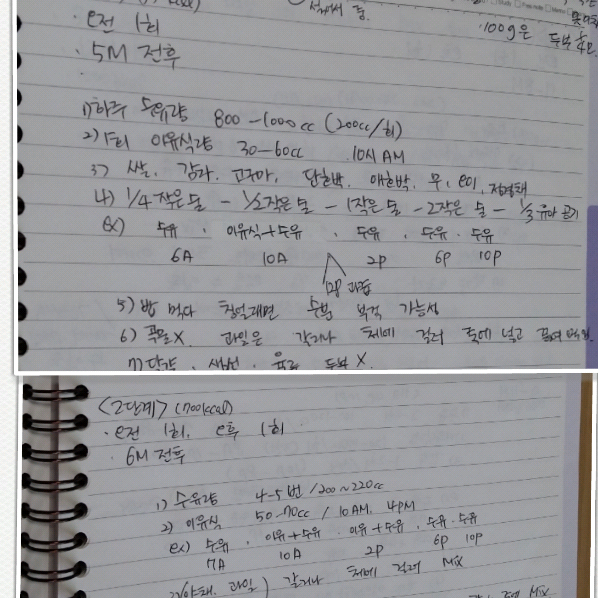 100g은 두부
· e전 1회
· 5M 전후
1) 하루 수유량 800-1000cc (200cc/회)
2) 1회 이유식량 30-60cc 10시 AM
3) 쌀, 감자, 고구마, 단호박, 애호박, 무, 오이,
4) 1/4 작은 술 - 1/2 작은 술 - 1작은 술 - 2작은 술 - 1/3 유아 공기
ex) 수유 · 이유식+수유 · 수유 · 수유 · 수유
6A 10A 2P 6P 10P
12P 과즙
5) 밥 먹다 칭얼대면 수분 부족 가능성
6) 곡물X. 과일은 갈거나 체에 걸러 죽에 넣고
7) 난각 · 생선 · 육류 두부 X.
<2단계> (700kcal)
· e전 1회, e후 1회
· 6M 전후
1) 수유량 4-5번 / 200~220cc
2) 이유식 50-70cc / 10AM, 4PM
ex) 수유 · 이유+수유 · 이유+수유 · 수유 · 수유
7A 10A 2P 6P 10P
과일) 갈거나 체에 걸러 Mix
Mix